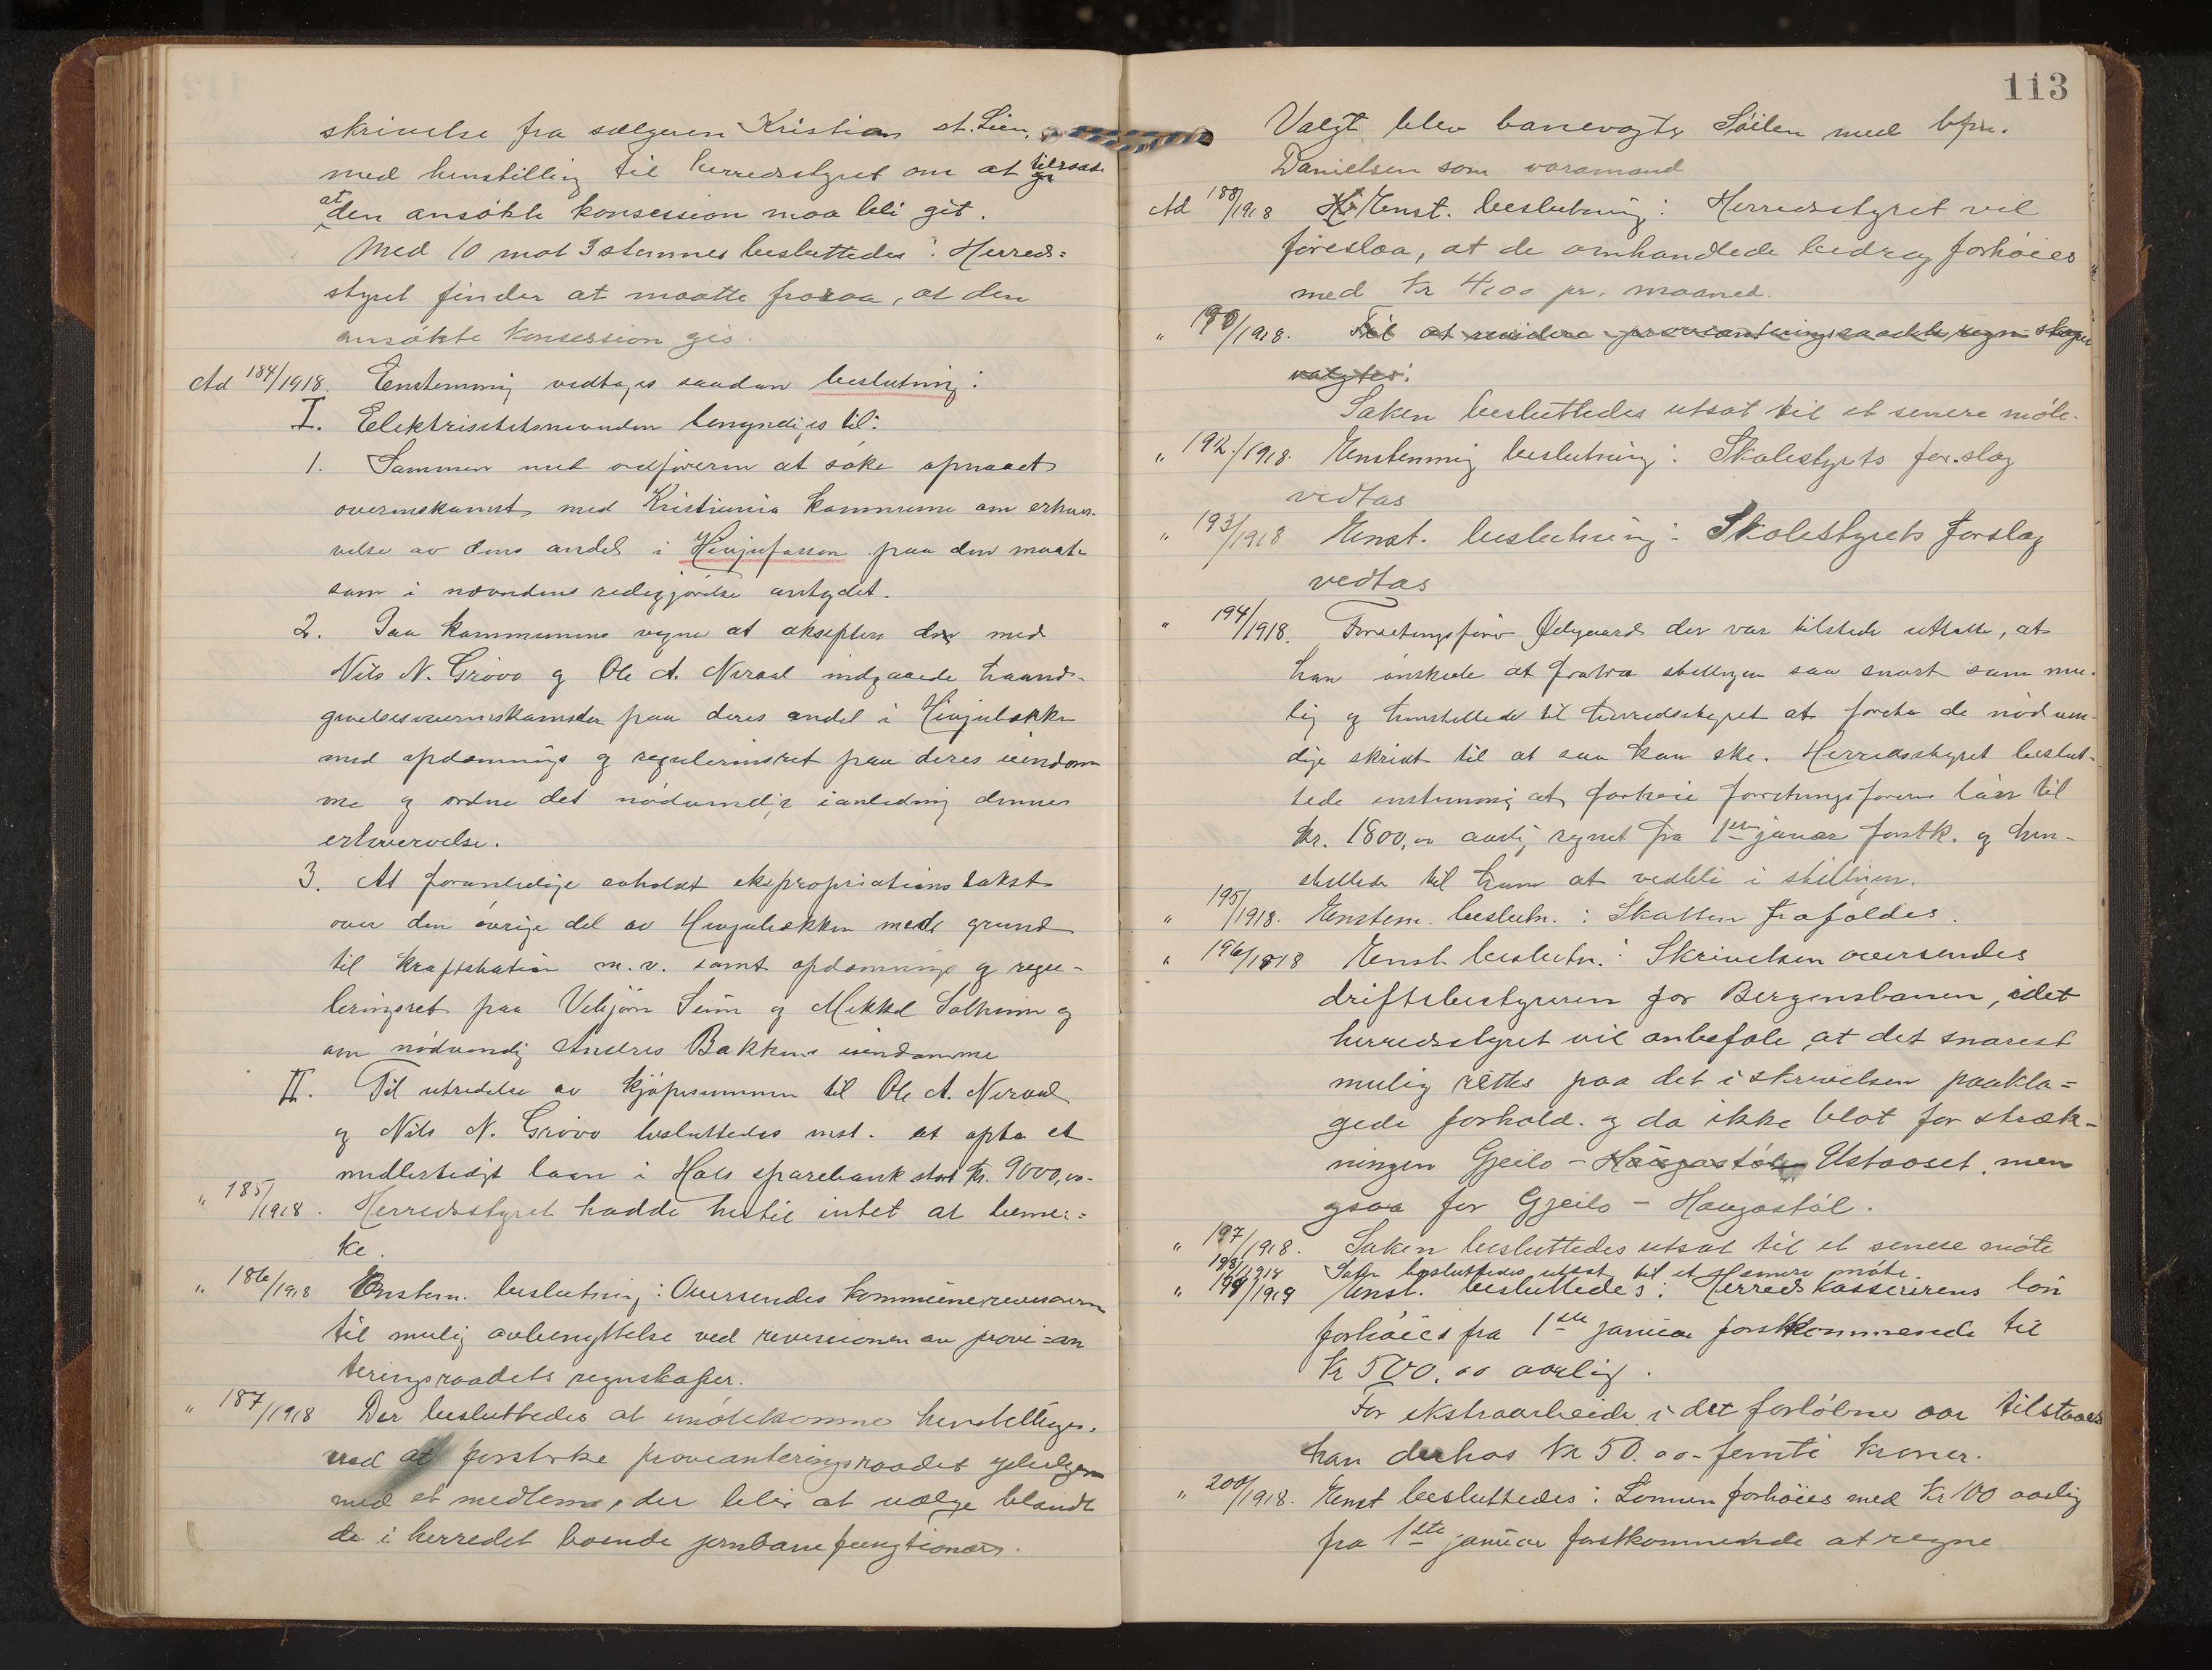 skrivelse fra sælgeren Kristian st. Lien,
med henstilling til herredsstyret om at tilraade
at den ansökte konsession maa bli git.
Med 10 mot 3 stemmer besluttedes: Herreds=
styret finder at maatte fraraa, at den
ansökte konsession gis.
Ad 184/1918. Enstemmig vedtages saadan beslutning:
I. Elektrisitetsnevnden bemyndiges til:
1. Sammen med ordföreren at söke opnaaet
overenskomst med Kristiania kommune om erhver-
velse av dens andel i Hivjufossen paa den maate
som i nævndens redegjörelse antydet.
2. Paa kommunens vegne at akseptere de med
Nils N. Grövo og Ole A. Neraal indgaaede haand-
givelsesoverenskomster paa deres andel i Hivjubækken
med opdæmnings og reguleringsret paa deres eiendom
me og ordne det nödvendige i anledning dennes
erhvervelse.
3. At foranledige avholdt ekspropriationstakst
over den övrige del av Hivjubækken med grund
til kraftstation m.v. samt opdæmnings og regu-
leringsret paa Vebjörn Seim og Mikkel Solheim og
om nödvendig Andres Bakkens eiendomme
II. Til utredelse av kjöpesummen til Ole A. Neraal
og Nils N. Grövo besluttedes enst. at opta et
midlertidigt laan i Hols sparebank stort kr. 9000,00-
" 185/1918. Herredsstyret hadde hertil intet at bemer=
ke.
" 186/1918 Enstem. beslutning: Oversendes kommunerevisoren
til mulig avbenyttelse ved revisionen av provi=an
teringsraadets regnskaper.
" 187/1918 Der besluttedes at imötekomme henstillingen,
ved at forstærke provianteringsraadet yderligere
med et medlem, der blir at vælge blandt
de i herredet boende jernbanefungtionærer.
113
Valgt blev banevogter Söilen med bfm.
Danielsen som varamand
Ad 188/1918 Enst. beslutning: Herredsstyret vil
foreslaa, at de omhandlede bedrag forhöies
med kr 4,00 pr. maaned.
" 190/1918. Til at revidere provianteringsraadets regnskaper
valgtes:
Saken besluttedes utsat til et senere möte.
" 192/1918. Enstemmig beslutning: Skolestyrets forslag
vedtas
" 193/1918 Enst. beslutning: Skolestyrets forslag
vedtas
" 194/1918. Forretningsförer Ødegaard der var tilstede uttalte, at
han önskede at fratræ stillingen saa snart som mu-
lig og henstillede til herredsstyret at foreta de nödven-
dige skridt til at saa kan ske. Herredsstyret beslut-
tede enstemmig at forhöie forretningsförerens lön til
kr. 1800,00 aarlig regnet fra 1ste januar förstk. og hen-
stillede til ham at vedbli i stillingen.
" 195/1918. Enstem. beslutn.: Skatten frafaldes.
" 196/1918 Enst. beslutn.: Skrivelsen oversendes
driftsbestyreren for Bergensbanen, idet
herredsstyret vil anbefale, at det snarest
mulig rettes paa det i skrivelsen paakla=
gede forhold. og da ikke blot for stræk-
ningen Gjeilo - Haugastöl Ustaoset, men
ogsaa for Gjeilo - Haugastöl.
" 197/1918. Saken besluttedes utsat til et senere möte
198/1918 Saken besluttedes utsat til et senere möte
" 199/1918 Enst. besluttedes: Herredskassererens lön
forhöies fra 1ste januar förstkommende til
kr 500,00 aarlig.
For ekstraarbeide i det forlöbne aar tilstaaes
han derhos kr 50.00 - femti kroner.
" 200/1918. Enst besluttedes: Lönnen forhöies med kr 100 aarlig
fra 1ste januar förstkommende at regne